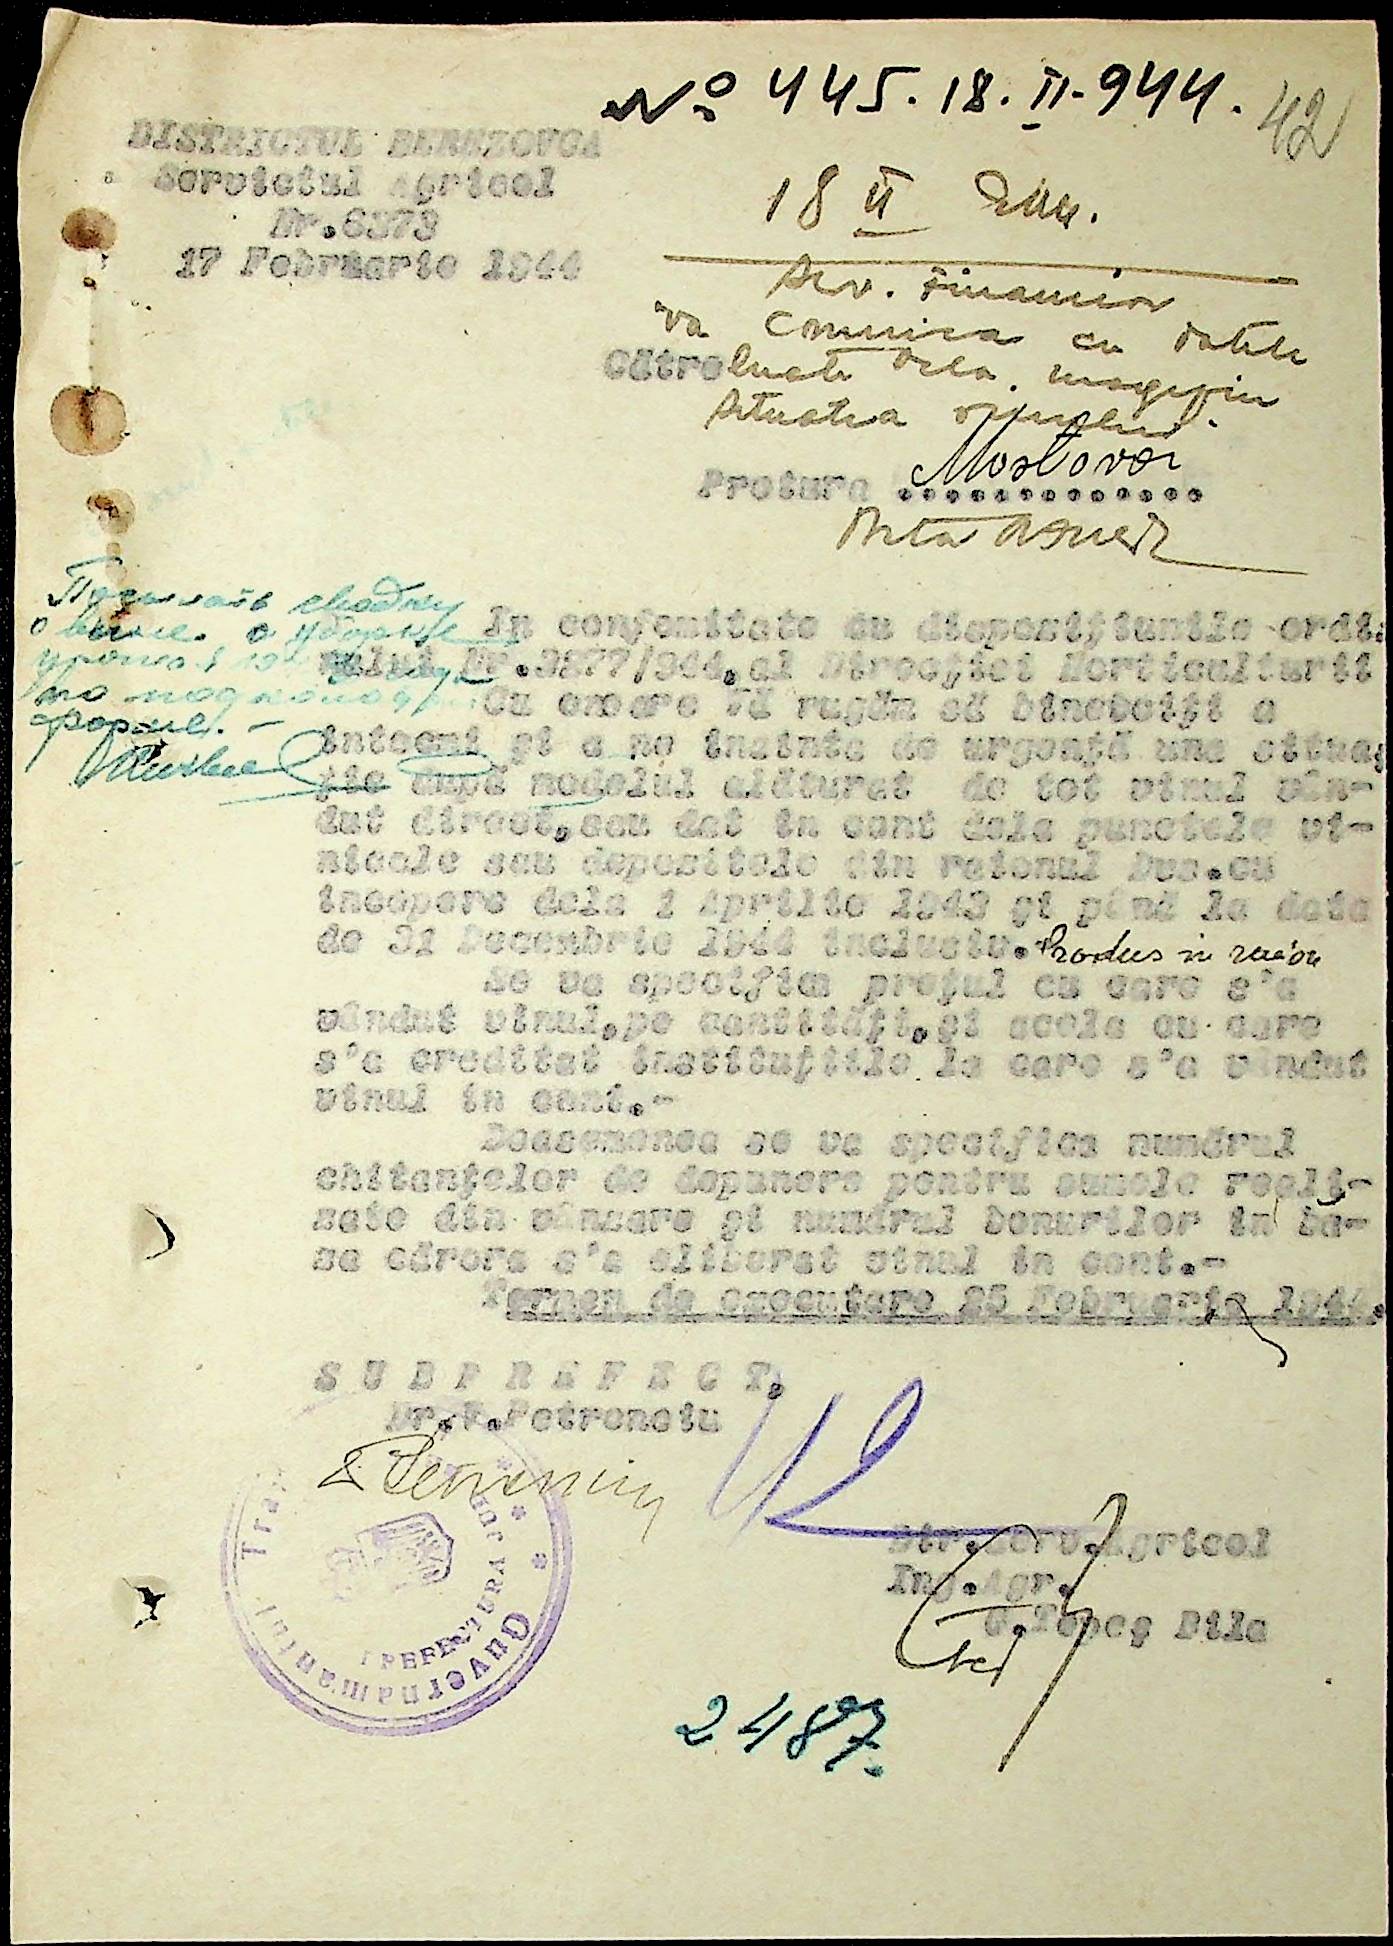 № 445. 18. II. 944.
42
DISTRICTUL BEREZOVCA
Serviciul Agricol
Nr.6373
17 Februarie 1944
18 II
Serv. Financiar
va comunica cu datele
luate dela magazin
situatia
Către
Mostovoi
Pretura ..............
о вине. о
форме. -
In confomitate cu dispozițiunile ordi-
nului Nr.3277/944,al Direcției Horticulturii
Cu onoare Vă rugăm să binevoiți a
intocmi și a ne inainta de urgență una situa-
ție după modelul alăturat de tot vinul vân-
dut direct,sau dat in cont dela punctele vi-
nicole sau depozitele din raionul Dvs.cu
incepere dela 1 Aprilie 1943 și până la data
de 31 Decembrie 1944 inclusiv. Produs in raion
Se va specifica prețul cu care s'a
vândut vinul,pe cantități,și acela cu care
s'a creditat instituțiile la care s'a vândut
vinul in cont.-
Deasemenea se va specifica numărul
chitanțelor de depunere pentru sumele reali-
zate din vânzare și numărul bonurilor in ba-
za cărora s'a eliberat vinul in cont.-
Termen de executare 25 Februarie 1944.
S U B P R E F E C T,
Dr.V.Petrenciu
Dir.Serv.Agricol
Ing.Agr.
G.Țepeș Bila
Guvernamantul
PREFECTURA JUD
2487.